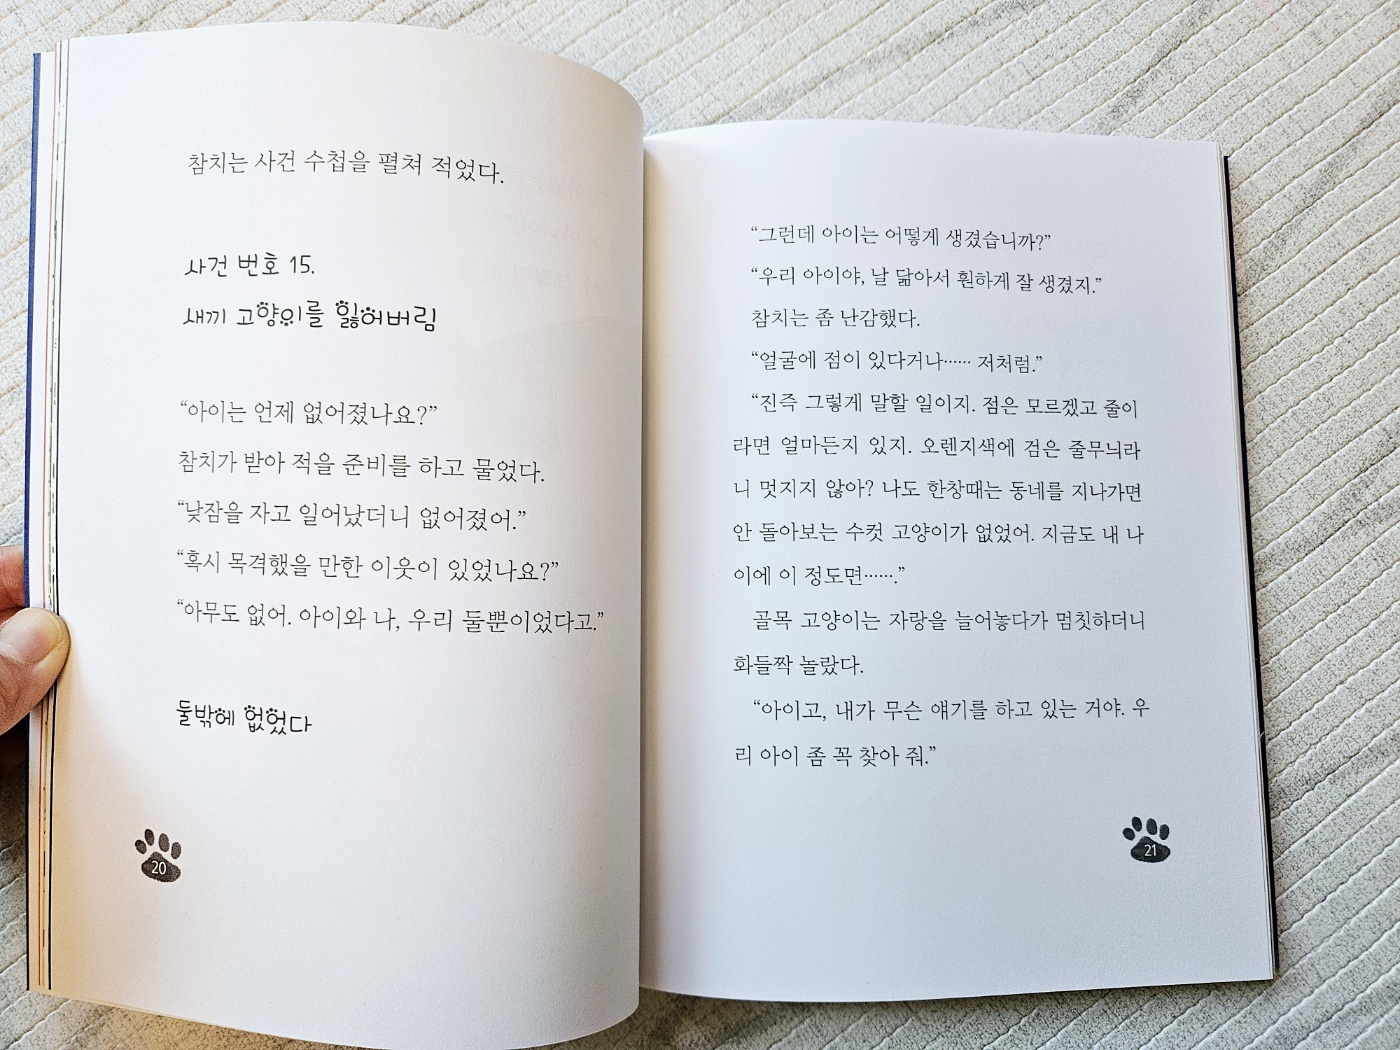 참치는 사건 수첩을 펼쳐 적었다.
사건 번호 15.
새끼 고양이를 잃어버림
“아이는 언제 없어졌나요?”
참치가 받아 적을 준비를 하고 물었다.
“낮잠을 자고 일어났더니 없어졌어.”
“혹시 목격했을 만한 이웃이 있었나요?”
“아무도 없어. 아이와 나, 우리 둘뿐이었다고.”
둘밖에 없었다
20
“그런데 아이는 어떻게 생겼습니까?”
“우리 아이야, 날 닮아서 훤하게 잘 생겼지.”
참치는 좀 난감했다.
“얼굴에 점이 있다거나…… 저처럼.”
“진즉 그렇게 말할 일이지. 점은 모르겠고 줄이
라면 얼마든지 있지. 오렌지색에 검은 줄무늬라
니 멋지지 않아? 나도 한창때는 동네를 지나가면
안 돌아보는 수컷 고양이가 없었어. 지금도 내 나
이에 이 정도면…….”
골목 고양이는 자랑을 늘어놓다가 멈칫하더니
화들짝 놀랐다.
“아이고, 내가 무슨 얘기를 하고 있는 거야. 우
리 아이 좀 꼭 찾아 줘.”
21